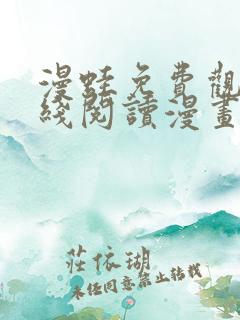 漫蛙免費觀
綫閱讀漫畫
莊依瑚
未经同意禁止转载